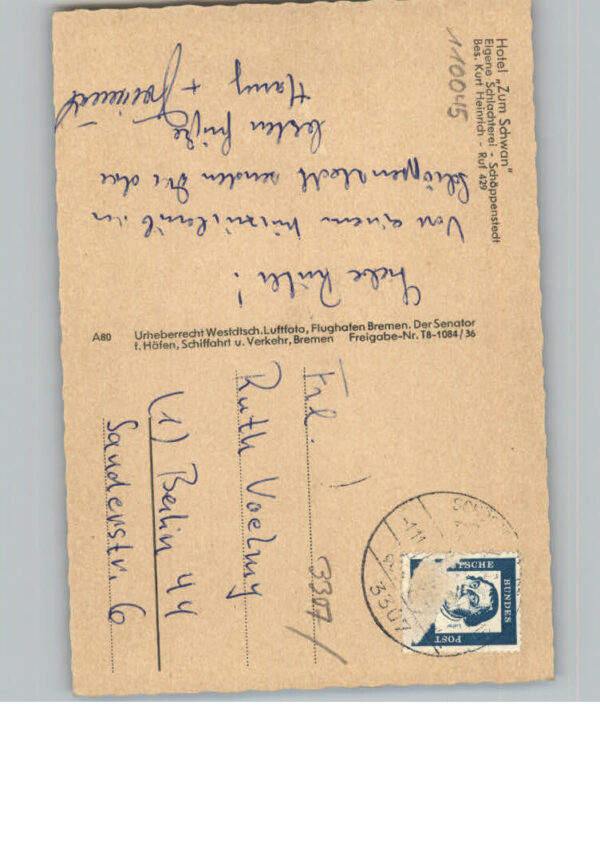 Hotel „Zum Schwan"
Eigene Schlachterei - Schöppenstedt
Bes. Kurt Heinrich - Ruf 429
110045
Liebe Ruth!
Von einem Kurzurlaub in
Schöppenstedt senden Dir die
besten Grüße
+
A80 Urheberrecht Westdtsch.Luftfoto, Flughafen Bremen. Der Senator
f. Häfen, Schiffahrt u. Verkehr, Bremen Freigabe-Nr. T8-1084/36
TSCHE
BUNDES
POST
Luther
3307
Frl.
3307/
Ruth Voelmy
(1) Berlin 44
Sanderstr. 6